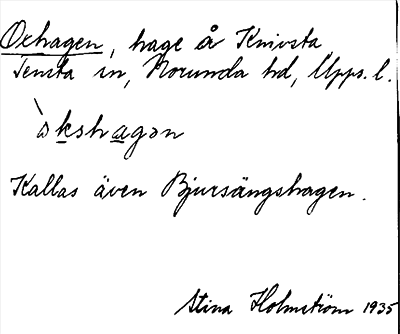 Oxhagen, hage å Knivsta
Tensta sn, Norunda hd, Upps. l.
`ɷkshagɘn
Kallas även Bjursängshagen.
Stina Holmström 1935